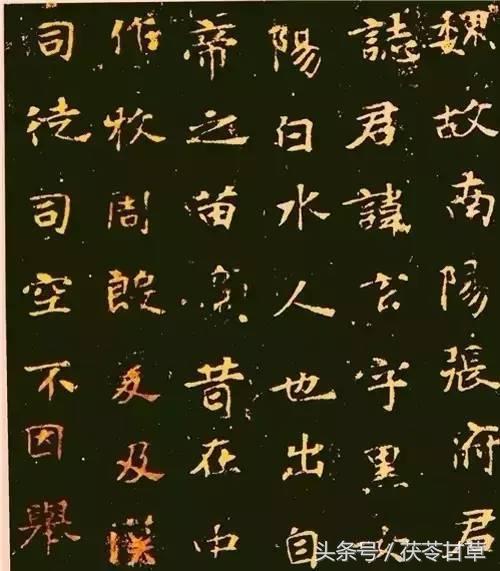 魏故南陽張府君
誌君諱玄字黑女
陽白水人也出自
帝之苗裔昔在中
作牧周殷爰及漢
司徒司空不因舉
头条号/茯苓甘草